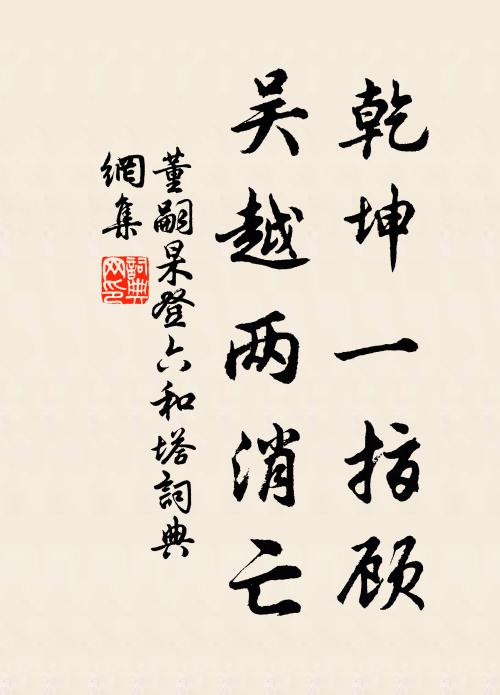 乾坤一指顾
吴越两消亡
董嗣杲登六和塔詞典
網集
詞典網印